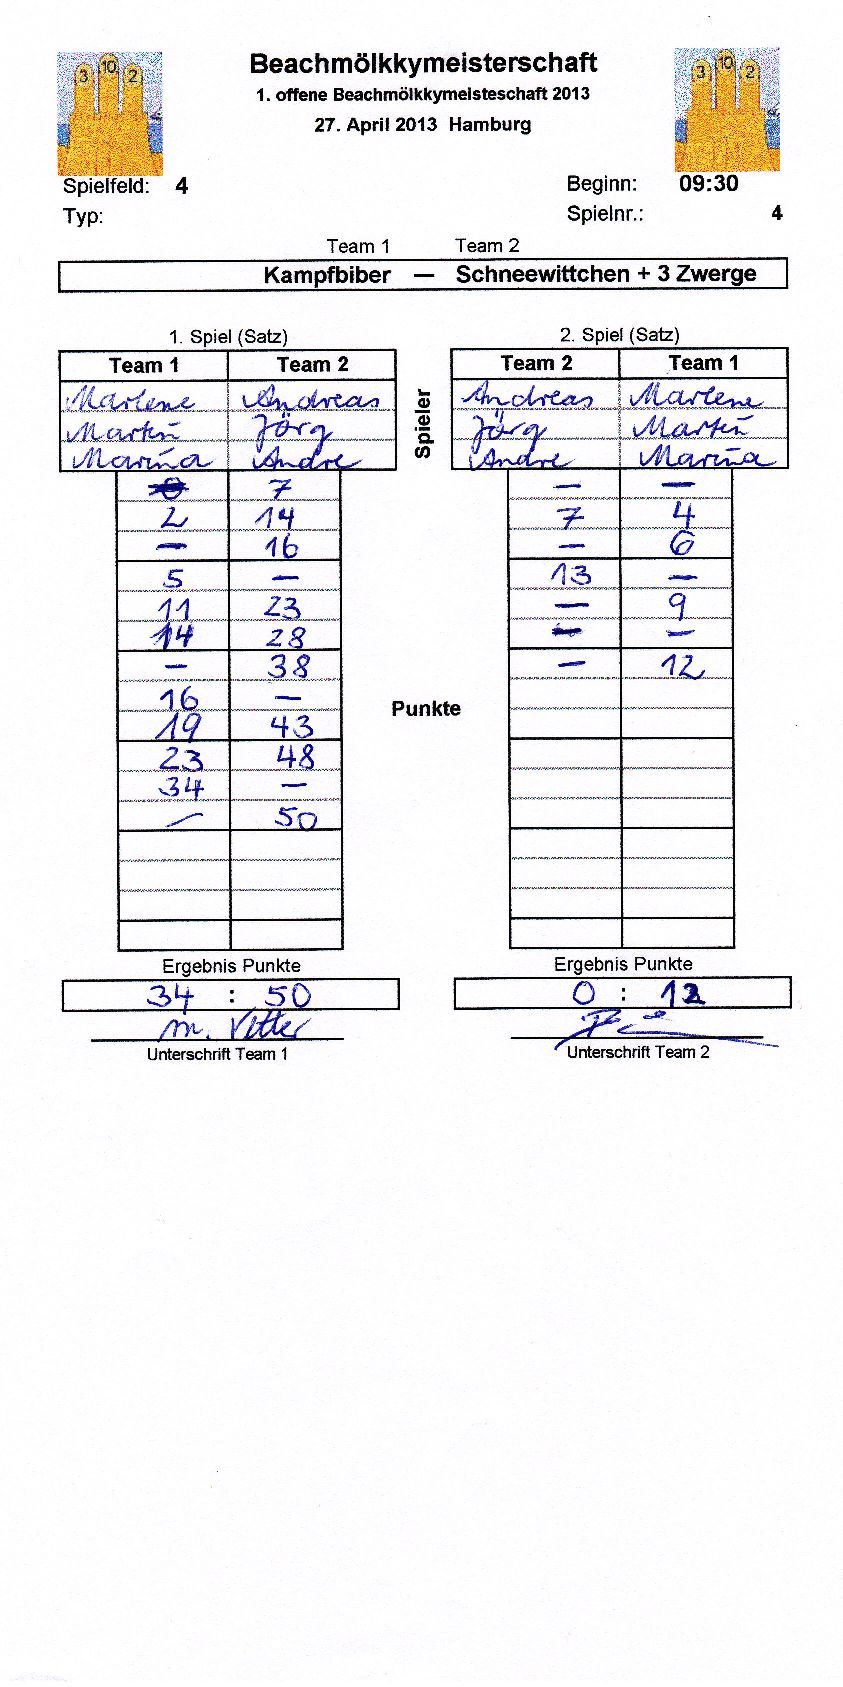 3 10 2
Beachmölkkymeisterschaft
3 10 2
1. offene Beachmölkkymeisteschaft 2013
27. April 2013 Hamburg
Spielfeld: 4 Beginn: 09:30
Typ: Spielnr.: 4
Team 1 Team 2
Kampfbiber — Schneewittchen + 3 Zwerge
1. Spiel (Satz) 2. Spiel (Satz)
Team 1 Team 2 Team 2 Team 1
Spieler
Marlene Andreas Andreas Marlene
Martin Jörg Jörg Martin
Marina Andre Andre Marina
7 — —
2 14 7 4
— 16 — 6
5 — 13 —
11 23 — 9
14 28 — —
— 38 — 12
16 —
Punkte
19 43
23 48
34 —
— 50
Ergebnis Punkte Ergebnis Punkte
34 : 50 0 : 12
M. Vetter
Unterschrift Team 1 Unterschrift Team 2